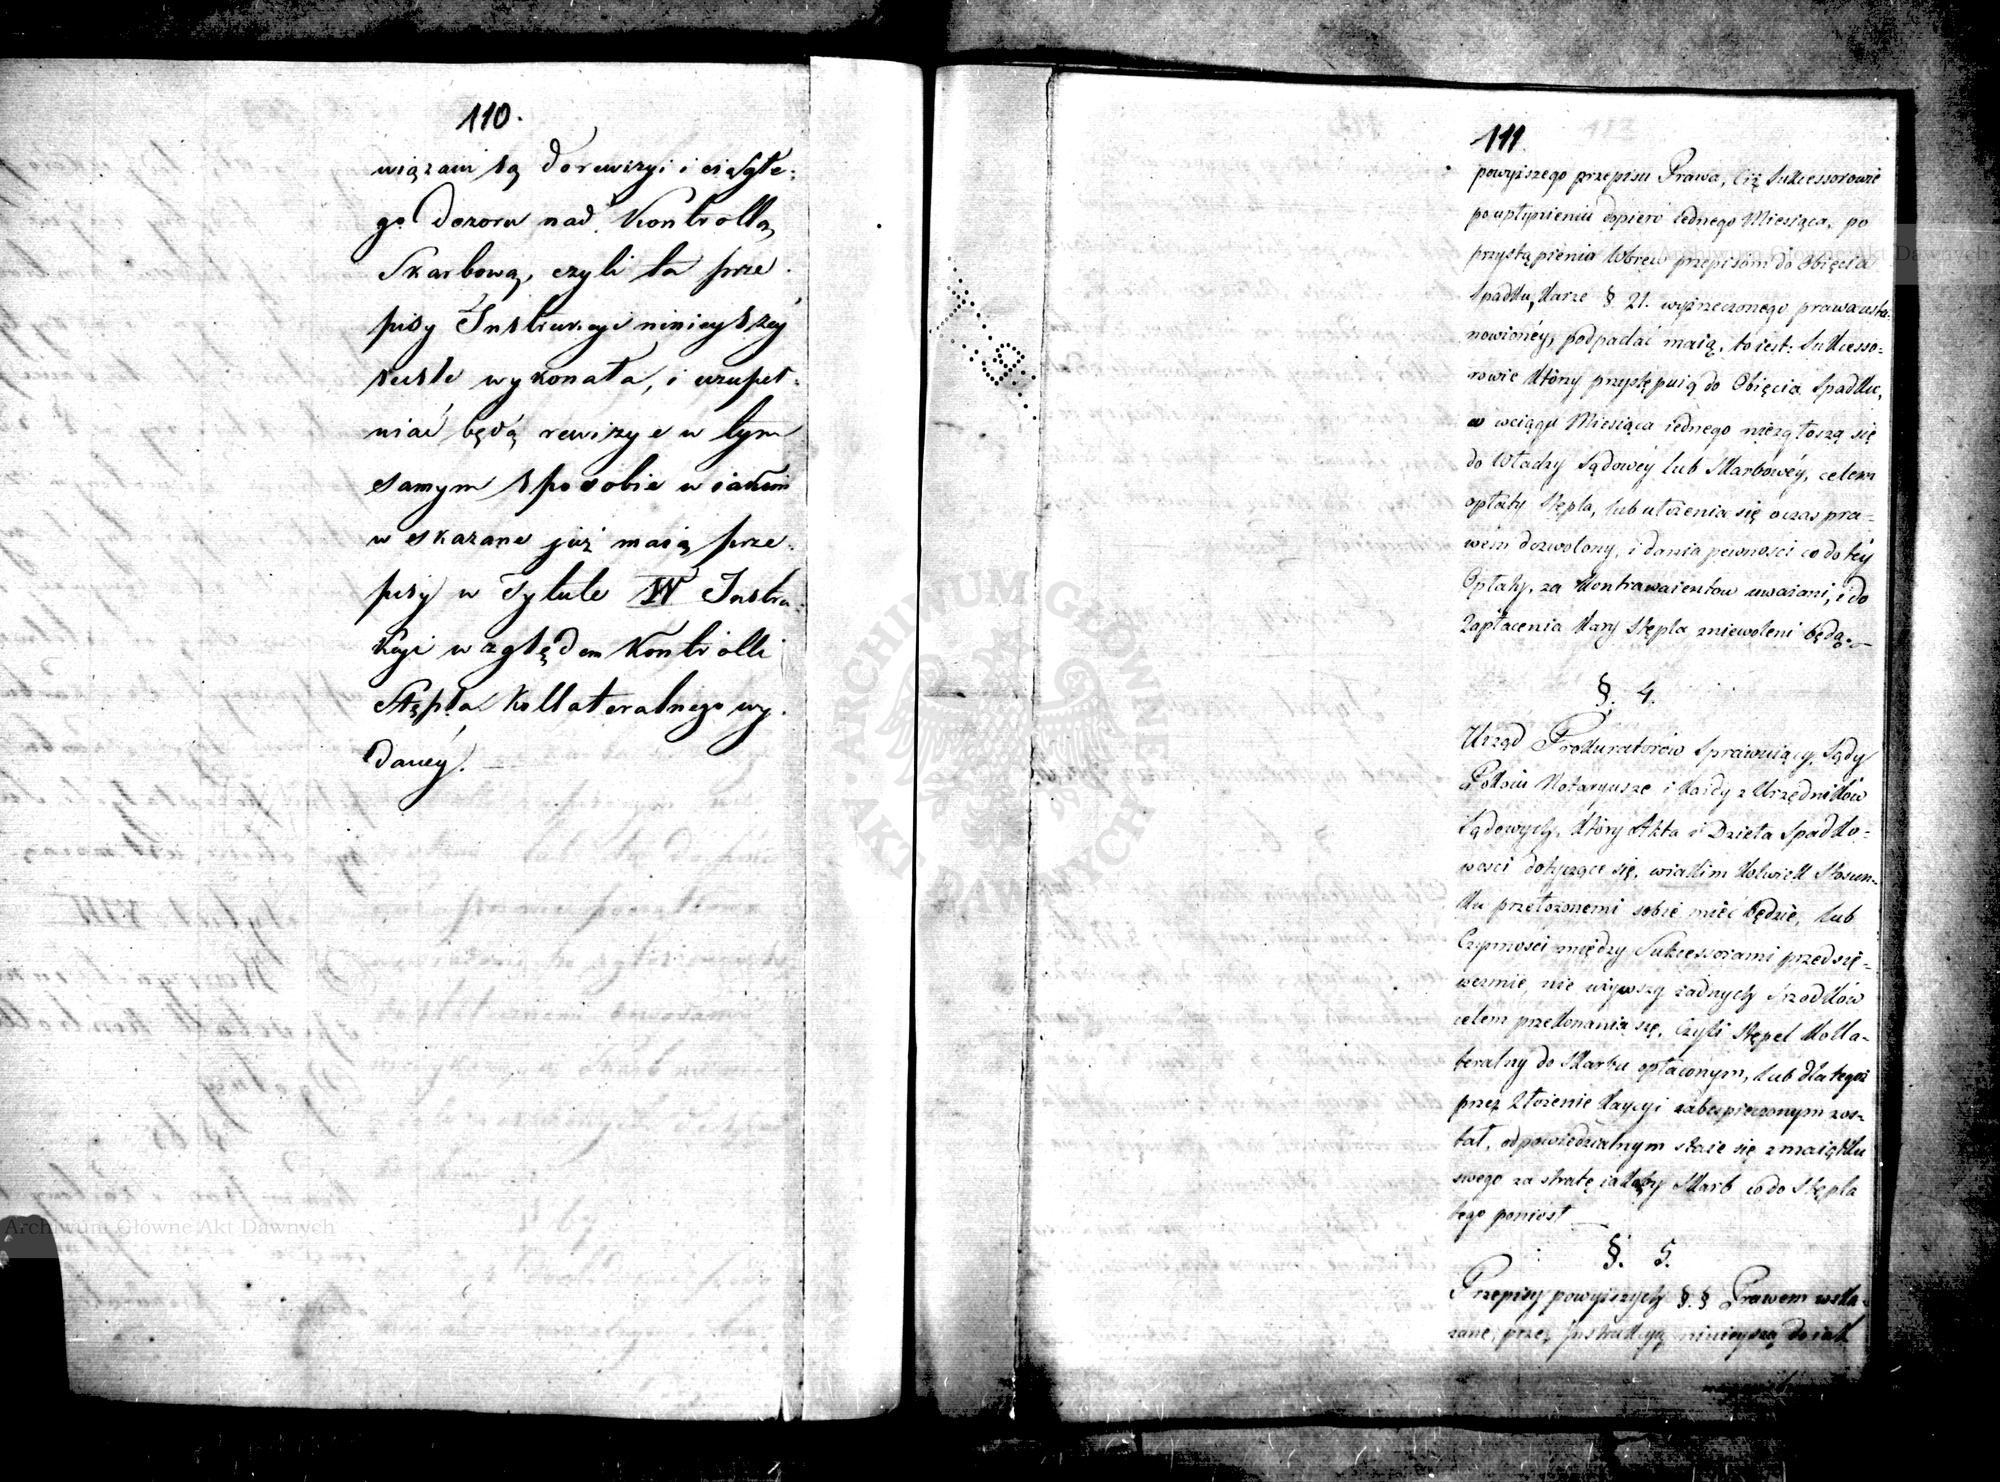 110.
wiązani są do rewizyi i ciągłe=
go dozoru nad Kontrollą
Skarbową, czyli ta prze=
pisy Instrukcyi ninieyszéy
ściśle wykonała, i uzupeł=
niać będą rewizye w tym
samym sposobie w iakim
wskazane już maią prze=
pisy w Tytule IV Instru=
kcyi względem Kontrolli
Stępla Kollateralnego wy=
danéy.
111
powyższego przepisu Prawa, Ciż Sukcessorowie
po upłynieniu dopiero iednego Miesiąca, po
przystąpienia wbrew przepisom do Obięcia
Spadku, Karze § 21. wyżrzeczonego prawa usta=
nowionéy, podpadać maią, to iest: Sukcesso=
rowie którzy przystępuią do Obięcia Spadku,
a w ciągu Miesiąca iednego niezgłoszą się
do Władzy Sądowéy lub Skarbowéy, celem
opłaty Stępla, lub ułożenia się o czas pra=
wem dozwolony, i dania pewności co do téy
Opłaty, za Kontrawenientow uważani, i do
Zapłacenia Kary Stępla zniewoleni będą.
§. 4.
Urząd Prokuratorów sprawuiący, Sądy
Pokoiu Notaryusze i każdy z Urzędników
Sądowych, który Akta i Dzieła Spadko=
wości dotyczące się, w iakim kolwiek Stosun=
ku przełożonemi sobie mieć będzie, lub
Czynności między Sukcessorami przedsię=
weźmie, nie używszy żadnych śrzodków
celem przekonania się, Czyli Stępel Kolla=
teralny do Skarbu opłaconym, lub dla tegoż
przez Złożenie Kaucyi zabezpieczonym zos=
tał, odpowiedzialnym staie się z maiątku
swego za stratę iakąby Skarb co do Stępla
tego poniosł
§. 5.
Przepisy powyższych §.§ Prawem wska=
zane, przez Instrukcyą ninieyszą do iak
Archiwum Główne Akt Dawnych
Archiwum Główne Akt Dawnych
ARCHIWUM GŁÓWNE AKT DAWNYCH